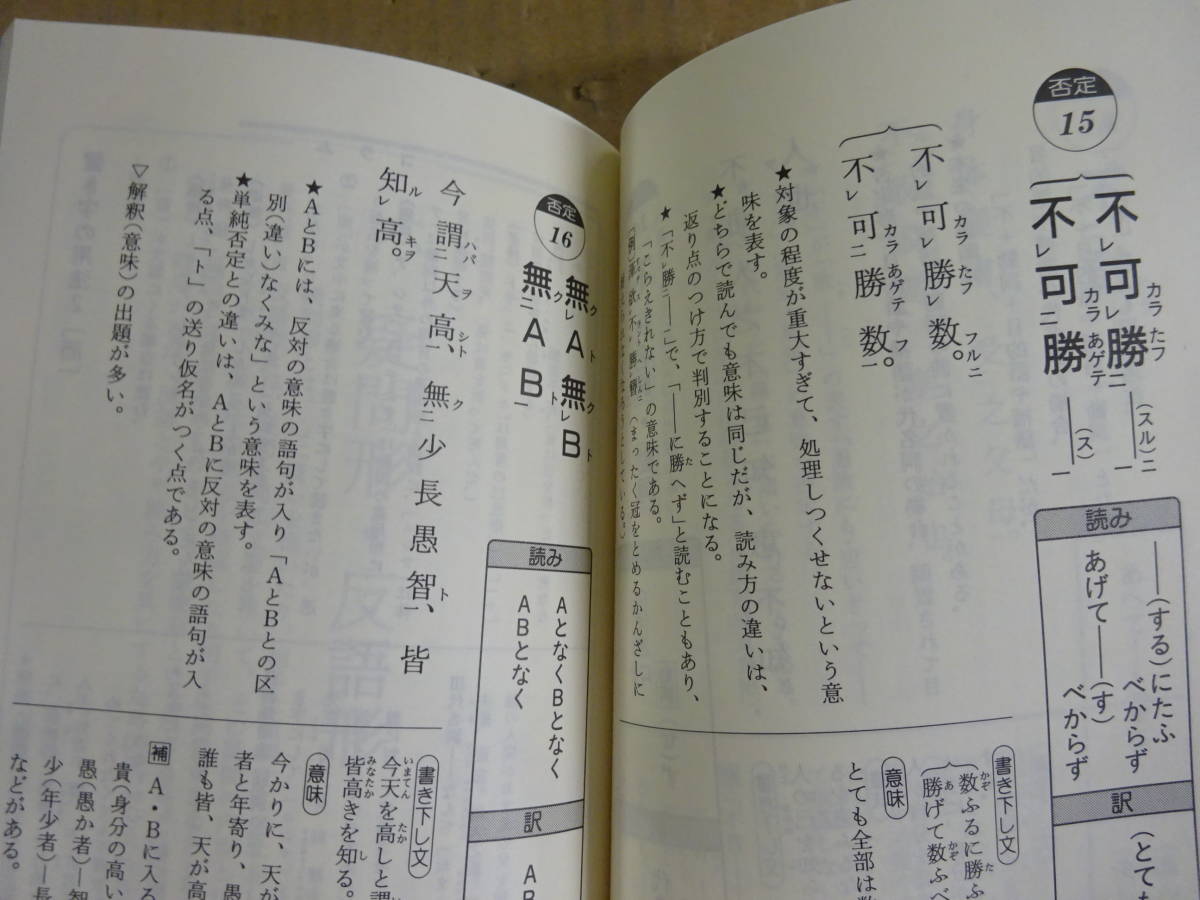 否定
15
不レ可カラレ勝たフ二――(スル)ニ一
不レ可カラ二勝あゲテ――(ス)一
読み
――(する)にたふべからず
あげて――(す)べからず
訳
不レ可カラレ勝たフレ数フルニ。
不レ可カラ二勝あゲテ数フ一。
★対象の程度が重大すぎて、処理しつくせないという意
味を表す。
★どちらで読んでも意味は同じだが、読み方の違いは、
返り点のつけ方で判別することになる。
★「不レ勝二――一」で、「――に勝たへず」と読むこともあり、
「こらえきれない」の意味である。
書き下し文
数かぞふるに勝たふ
勝あげて数かぞふべ
意味
とても全部は数
否定
16
無クレA ト無クレB ト
無ク二A B一ト
読み
AとなくBとなく
ABとなく
訳
今謂ハバ二天ヲ高シト一、無ク二少長愚智ト一、皆
知ルレ高キヲ。
★AとBには、反対の意味の語句が入り「AとBとの区
別(違い)なくみな」という意味を表す。
★単純否定との違いは、AとBに反対の意味の語句が入
る点、「ト」の送り仮名がつく点である。
▽解釈(意味)の出題が多い。
書き下し文
今いま天てんを高たかしと謂
皆みな高たかきを知しる。
意味
今かりに、天が
者と年寄り、愚
誰も皆、天が高
補 A・Bに入る
貴(身分の高い
愚(愚か者)―智
少(年少者)―長
などがある。